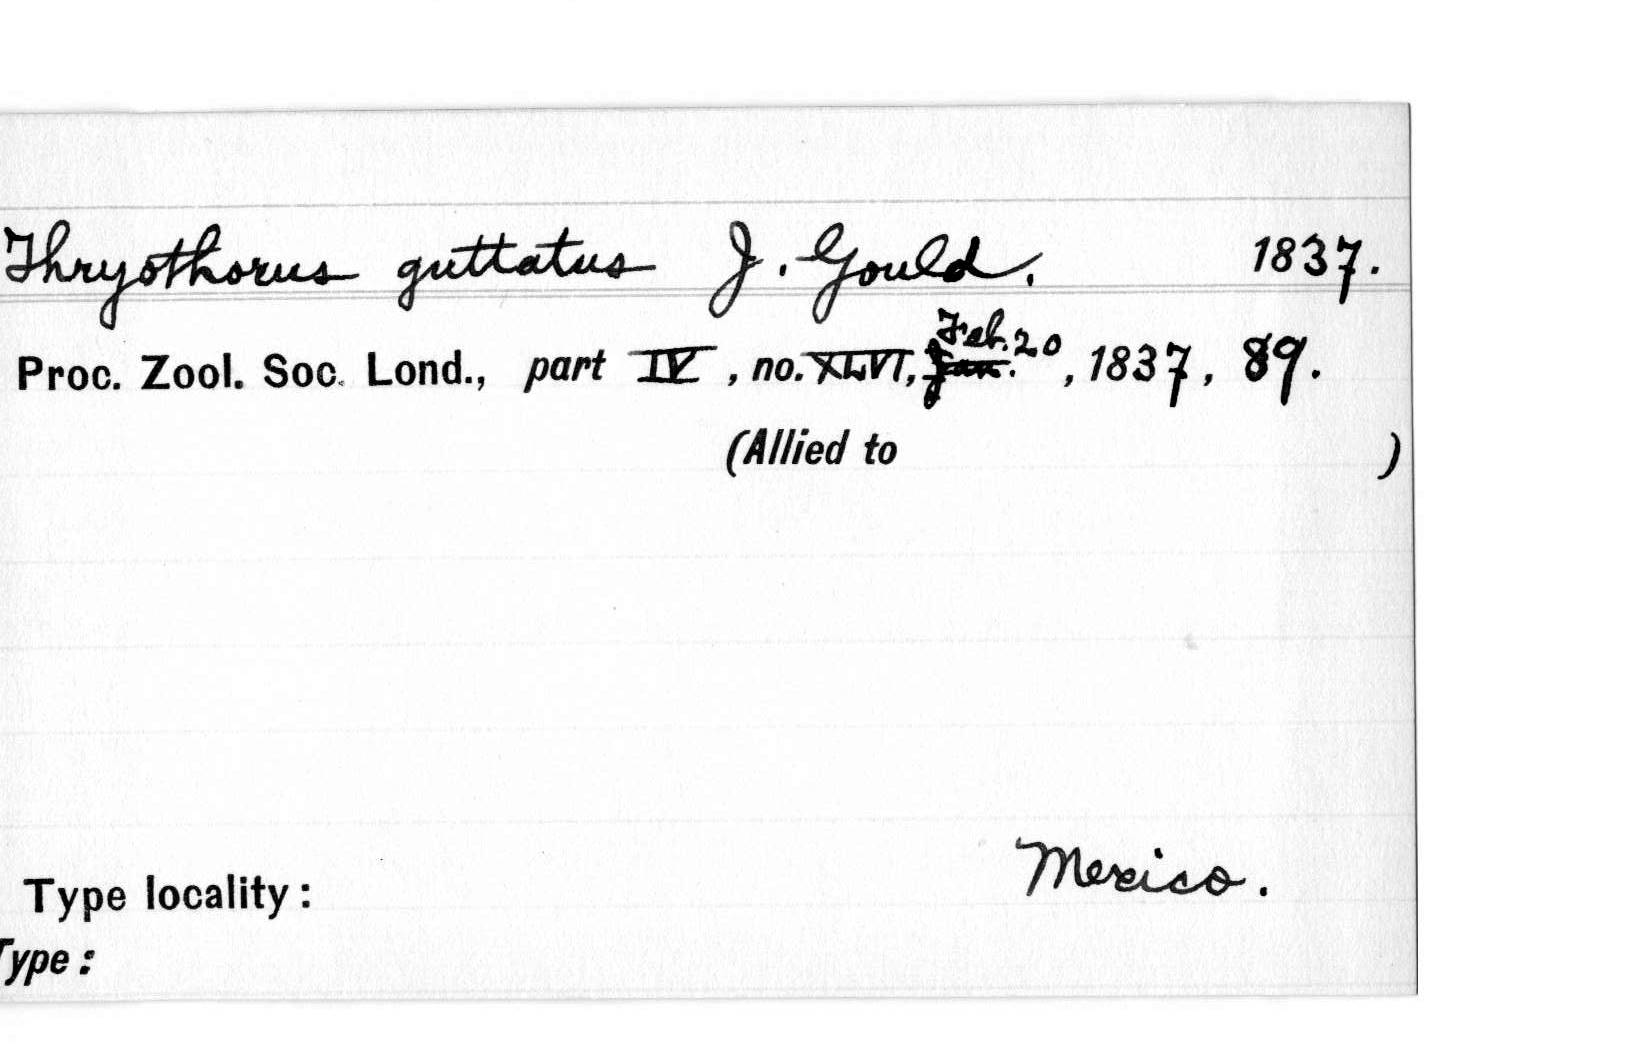 Thryothorus guttatus J. Gould. 1837.
Proc. Zool. Soc. Lond., part IV, no. XLVI, Jan. Feb. 20, 1837, 89.
(Allied to )
Type locality: Mexico.
Type: